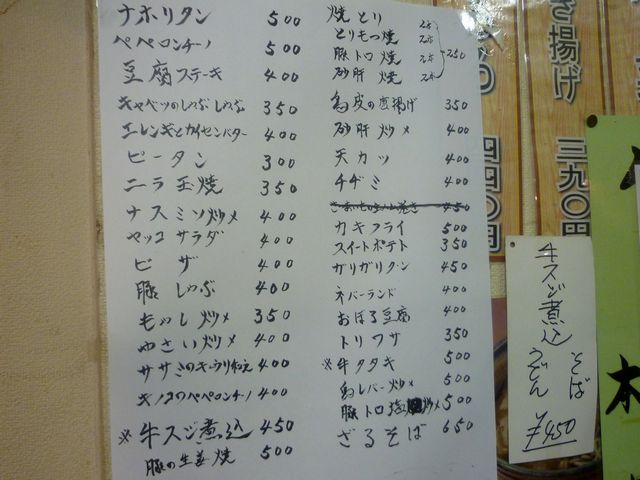 ナポリタン 500
ペペロンチーノ 500
豆腐ステーキ 400
キャベツのしゃぶしゃぶ 350
エレンギとカイセンバター 400
ピータン 300
ニラ玉焼 350
ナスミソ炒メ 400
ヤッコサラダ 400
ピザ 400
豚しゃぶ 400
もやし炒メ 350
やさい炒メ 400
ササミのキューリ和え 400
キノコのペペロンチーノ 400
※牛スジ煮込 450
豚の生姜焼 500
焼とり
とりもつ焼 2本
豚トロ焼 2本
砂肝焼 2本
250
鳥皮の唐揚げ 350
砂肝炒メ 400
天カツ 400
チヂミ 400
450
カキフライ 500
スイートポテト 350
ガリガリクン 450
ネバーランド 400
おぼろ豆腐 400
トリワサ 350
※牛タタキ 500
鳥レバー炒メ 500
豚トロ塩炒メ 500
ざるそば 650
き揚げ
四四〇円
三九〇円
牛スジ煮込
そば
うどん
¥450
本